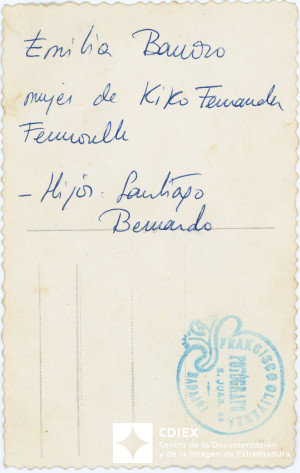 Emilia Barroso
mujer de Kiko Fernandez
- Hijos: Santiago
Bernardo
FRANCISCO OLIVENZA
FOTÓGRAFO
S. JUAN
BADAJOZ
CDIEX
Centro de la Documentación
y de la Imagen de Extremadura